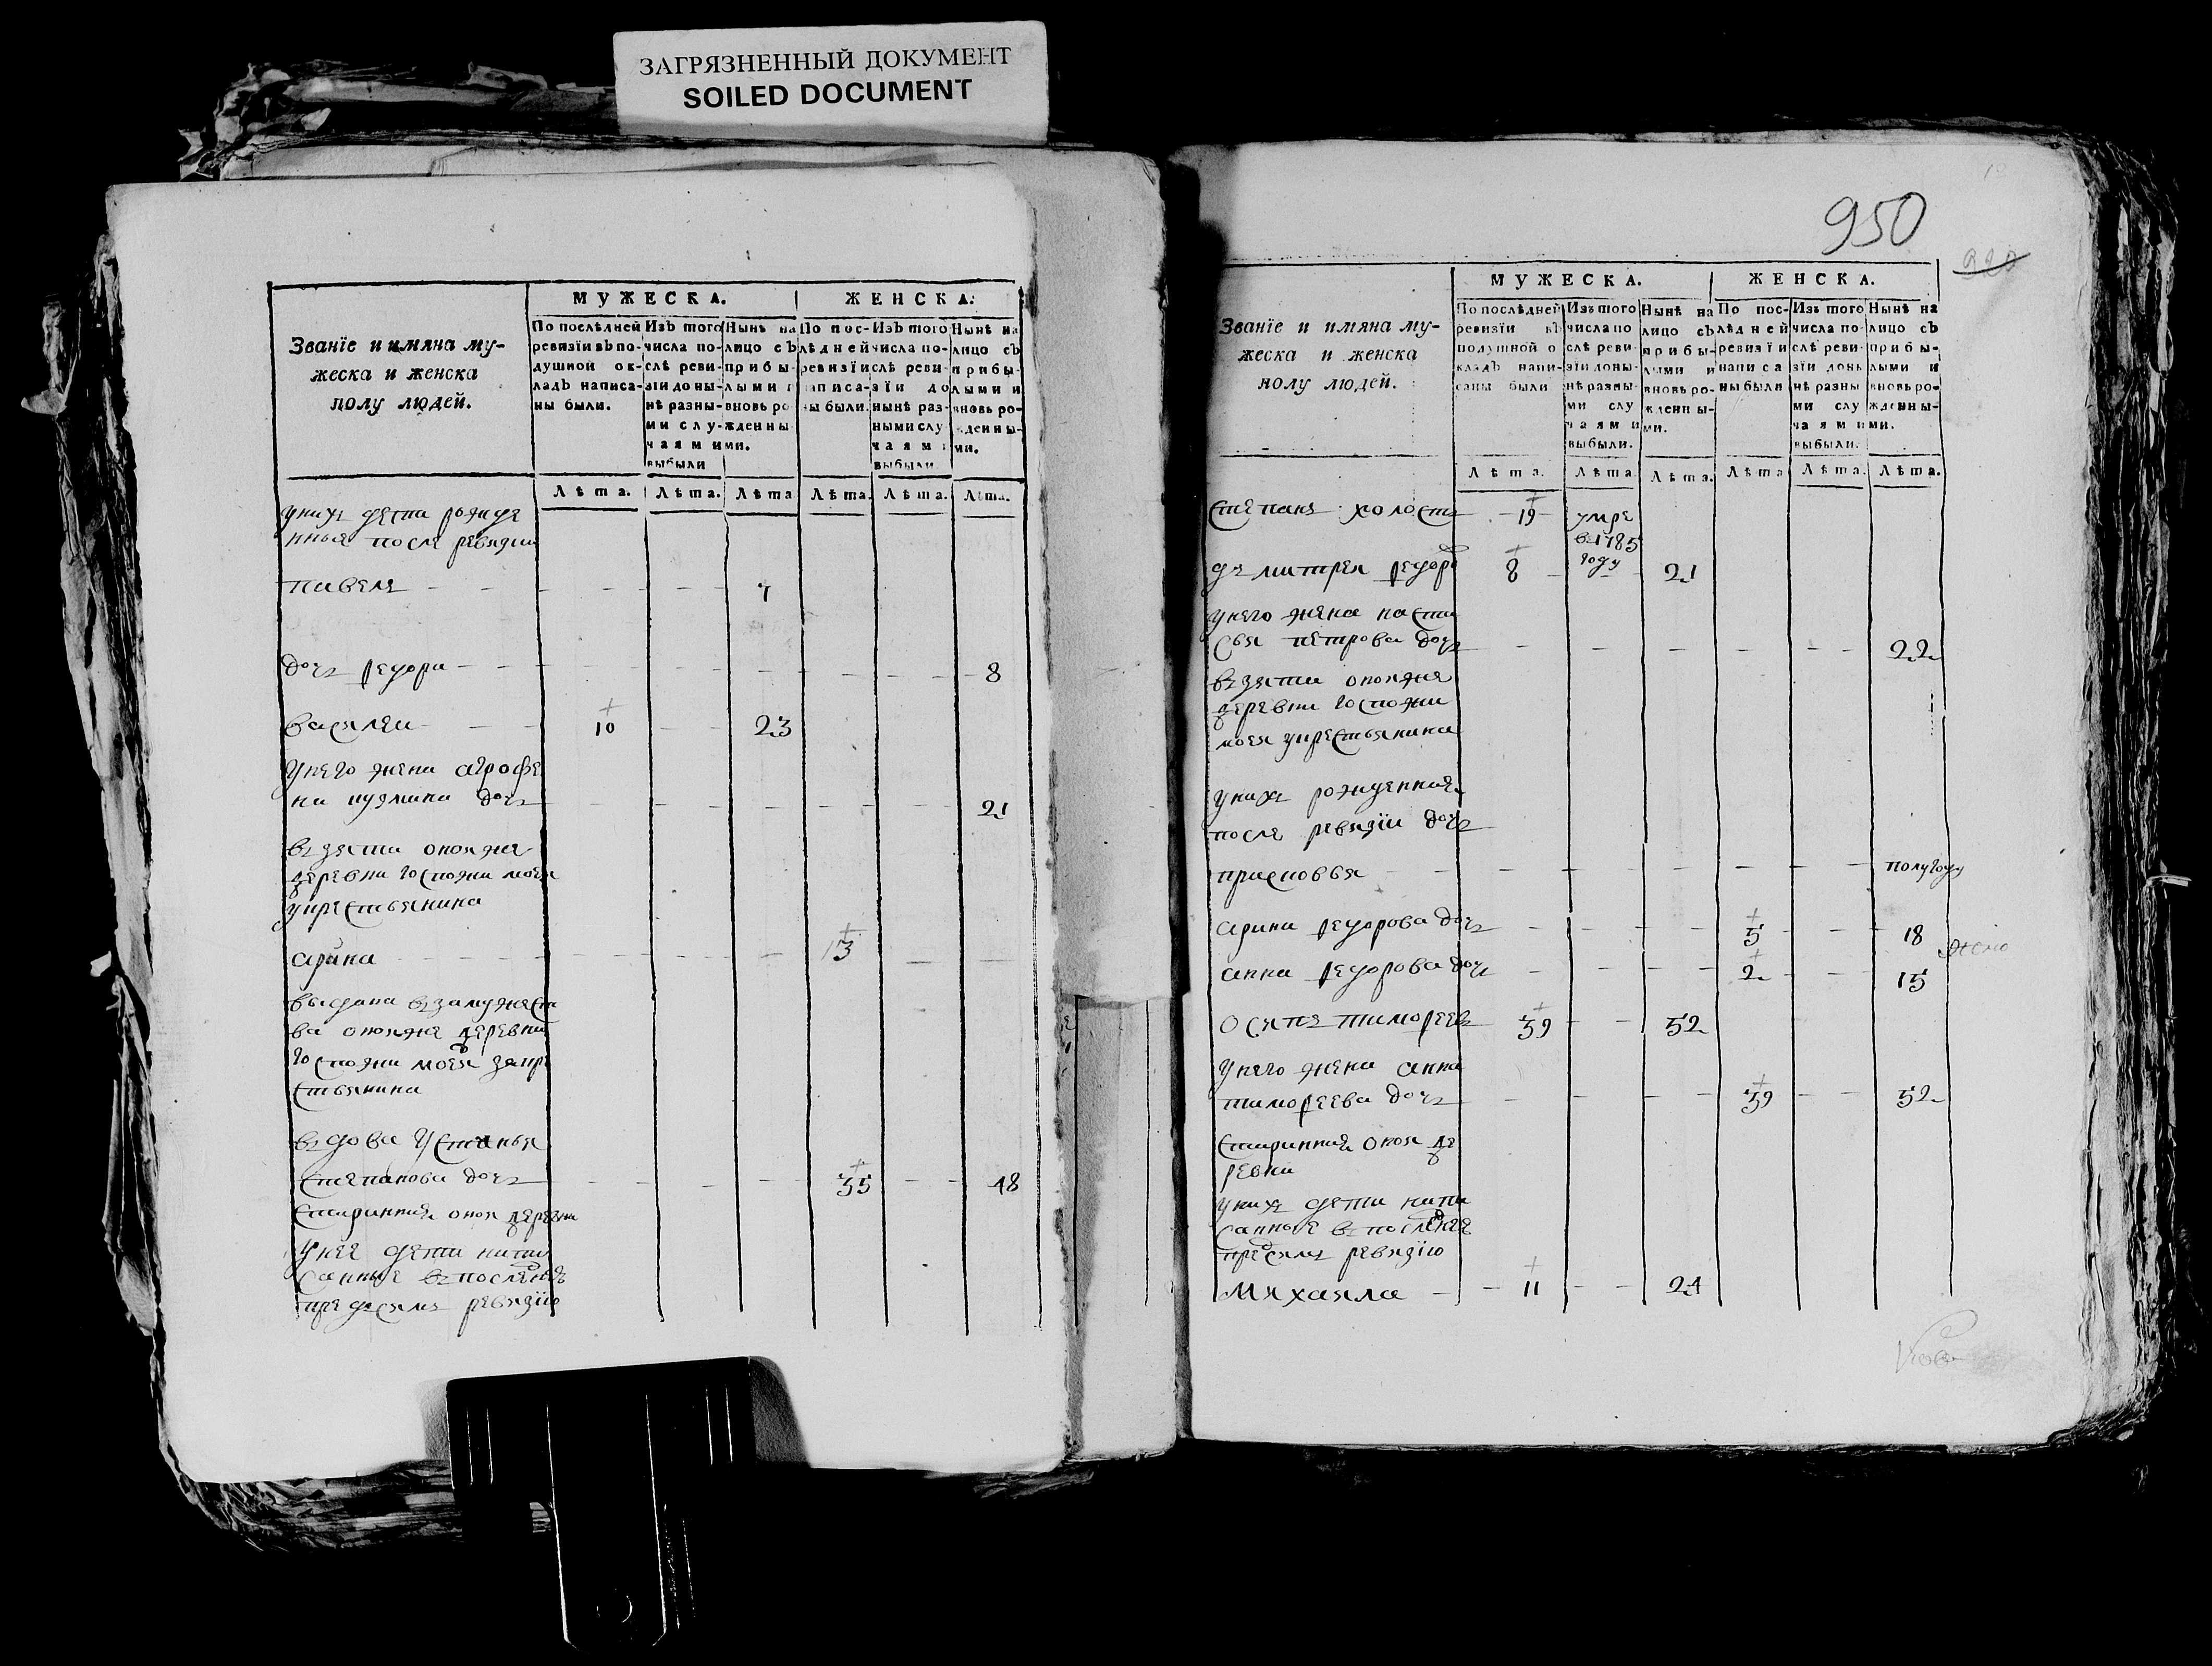 ЗАГРЯЗНЕННЫЙ ДОКУМЕНТ
SOILED DOCUMENT
Званїе и имяна му-
жеска и женска
полу людей.
МУЖЕСКА.
ЖЕНСКА.
По послѣдней ревизїи въ по-душной ок-ладъ написа-ны были.
Изъ того числа по-слѣ реви-зїи до ны-нѣ разны-ми слу-чаями выбыли
Нынѣ на лицо съ прибы-лыми и вновь ро-жденны-ми.
По пос-лѣдней ревизїи написа-ны были.
Изъ того числа по-слѣ реви-зїи до нынѣ раз-ными слу-чаями выбыли
Нынѣ на лицо съ прибы-лыми и вновь ро-жденны-ми.
Лѣта. Лѣта. Лѣта. Лѣта. Лѣта. Лѣта.
у нихъ дети рожде
нные после ревизии
павелъ 7
дочь федора 8
василеи 10 23
у него жена агрофе
на кузмина дочь 21
взята оной же
деревни госпожи моей
у крестьянина
арина 13
выдана в замужест
ва оной же деревни
госпожи моей за кре
стьянина
вдова устинья
степанова дочь 35 48
старинная оной деревни
у нее дети напи
санные в последнею
пред сим ревизїю
950
Званїе и имяна му-
жеска и женска
полу людей.
МУЖЕСКА.
ЖЕНСКА.
По послѣдней ревизїи въ подушной о кладъ напи-саны были
Изъ того числа по слѣ реви-зїи до ны-нѣ разны-ми слу чаями выбыли.
Нынѣ на лицо съ прибы-лыми и вновь ро-жденны-ми.
По пос-лѣдней ревизїи написа ны были
Изъ того числа по-слѣ реви-зїи до ны нѣ разны ми слу чаями выбыли.
Нынѣ на лицо съ прибы-лыми и вновь ро-жденны-ми.
Лѣта. Лѣта. Лѣта. Лѣта Лѣта. Лѣта.
степанъ холостъ 19 умре
в 1785
году
дмитреи федоро 8 21
у него жена наста
сья петрова дочь 22
взята оной же
деревни госпожи
моей у крестьянина
у них рожденная
после ревизїи дочь
прасковья полугоду
арина федорова дочь 5 18
анна федорова дочь 2 15
осипъ тимофеевъ 39 52
у него жена анна
тимофеева дочь 39 52
старинная оной де
ревни
у них дети напи
санные в последнею
пред сим ревизїю
михаила 11 24